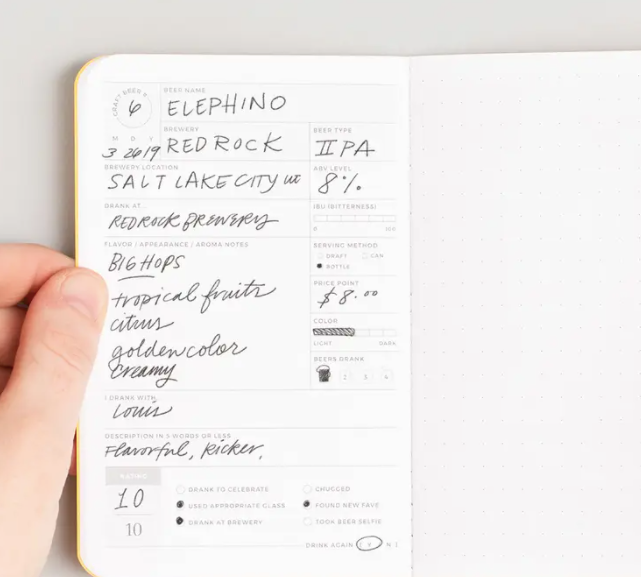 CRAFT BEER #
6
BEER NAME
ELEPHINO
M D Y
3 26 19
BREWERY
REDROCK
BEER TYPE
IIPA
BREWERY LOCATION
SALT LAKE CITY UT
ABV LEVEL
8%
DRANK AT...
REDROCK BREWERY
IBU (BITTERNESS)
0 100
FLAVOR / APPEARANCE / AROMA NOTES
BIG HOPS
tropical fruits
citrus
golden color
creamy
SERVING METHOD
DRAFT CAN
BOTTLE
PRICE POINT
$8.00
COLOR
LIGHT DARK
BEERS DRANK
2 3 4
I DRANK WITH...
Louis
DESCRIPTION IN 5 WORDS OR LESS
Flavorful, Kicker,
RATING
10
10
DRANK TO CELEBRATE
USED APPROPRIATE GLASS
DRANK AT BREWERY
CHUGGED
FOUND NEW FAVE
TOOK BEER SELFIE
DRINK AGAIN Y N